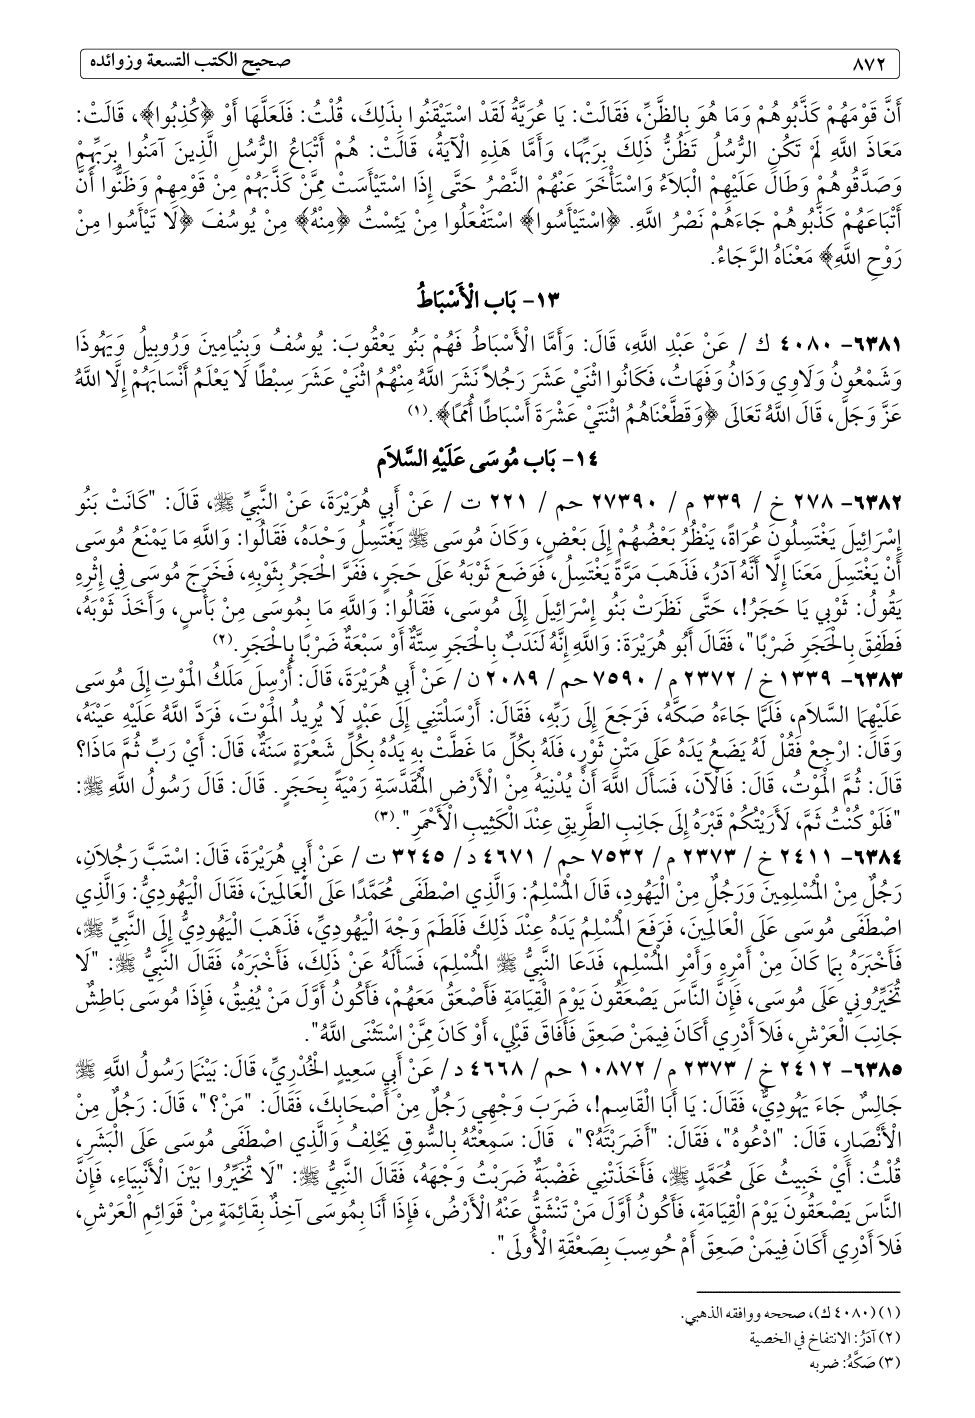 ٨٧٢ صحيح الكتب التسعة وزوائده
أَنَّ قَوْمَهُمْ كَذَّبُوهُمْ وَمَا هُوَ بِالظَّنِّ، فَقَالَتْ: يَا عُرَيَّةُ لَقَدْ اسْتَيْقَنُوا بِذَلِكَ، قُلْتُ: فَلَعَلَّهَا أَوْ ﴿كُذِبُوا﴾، قَالَتْ:
مَعَاذَ اللَّهِ لَمْ تَكُنِ الرُّسُلُ تَظُنُّ ذَلِكَ بِرَبِّهَا، وَأَمَّا هَذِهِ الْآيَةُ، قَالَتْ: هُمْ أَتْبَاعُ الرُّسُلِ الَّذِينَ آمَنُوا بِرَبِّهِمْ
وَصَدَّقُوهُمْ وَطَالَ عَلَيْهِمْ الْبَلَاءُ وَاسْتَأْخَرَ عَنْهُمْ النَّصْرُ حَتَّى إِذَا اسْتَيْأَسَتْ مِمَّنْ كَذَّبَهُمْ مِنْ قَوْمِهِمْ وَظَنُّوا أَنَّ
أَتْبَاعَهُمْ كَذَّبُوهُمْ جَاءَهُمْ نَصْرُ اللَّهِ. ﴿اسْتَيْأَسُوا﴾ اسْتَفْعَلُوا مِنْ يَئِسْتُ ﴿مِنْهُ﴾ مِنْ يُوسُفَ ﴿لَا تَيْأَسُوا مِنْ
رَوْحِ اللَّهِ﴾ مَعْنَاهُ الرَّجَاءُ.
١٣- بَاب الْأَسْبَاطُ
٦٣٨١- ٤٠٨٠ ك / عَنْ عَبْدِ اللَّهِ، قَالَ: وَأَمَّا الْأَسْبَاطُ فَهُمْ بَنُو يَعْقُوبَ: يُوسُفُ وَبِنْيَامِينَ وَرُوبِيلُ وَيَهُوذَا
وَشَمْعُونُ وَلَاوِي وَدَانُ وَفَهَاتُ، فَكَانُوا اثْنَيْ عَشَرَ رَجُلاً نَشَرَ اللَّهُ مِنْهُمُ اثْنَيْ عَشَرَ سِبْطًا لَا يَعْلَمُ أَنْسَابَهُمْ إِلَّا اللَّهُ
عَزَّ وَجَلَّ، قَالَ اللَّهُ تَعَالَى ﴿وَقَطَّعْنَاهُمُ اثْنَتَيْ عَشْرَةَ أَسْبَاطًا أُمَمًا﴾.(١)
١٤- بَاب مُوسَى عَلَيْهِ السَّلاَم
٦٣٨٢- ٢٧٨ خ / ٣٣٩ م / ٢٧٣٩٠ حم / ٢٢١ ت / عَنْ أَبِي هُرَيْرَةَ، عَنْ النَّبِيِّ ﷺ، قَالَ: "كَانَتْ بَنُو
إِسْرَائِيلَ يَغْتَسِلُونَ عُرَاةً، يَنْظُرُ بَعْضُهُمْ إِلَى بَعْضٍ، وَكَانَ مُوسَى ﷺ يَغْتَسِلُ وَحْدَهُ، فَقَالُوا: وَاللَّهِ مَا يَمْنَعُ مُوسَى
أَنْ يَغْتَسِلَ مَعَنَا إِلَّا أَنَّهُ آدَرُ، فَذَهَبَ مَرَّةً يَغْتَسِلُ، فَوَضَعَ ثَوْبَهُ عَلَى حَجَرٍ، فَفَرَّ الْحَجَرُ بِثَوْبِهِ، فَخَرَجَ مُوسَى فِي إِثْرِهِ
يَقُولُ: ثَوْبِي يَا حَجَرُ!، حَتَّى نَظَرَتْ بَنُو إِسْرَائِيلَ إِلَى مُوسَى، فَقَالُوا: وَاللَّهِ مَا بِمُوسَى مِنْ بَأْسٍ، وَأَخَذَ ثَوْبَهُ،
فَطَفِقَ بِالْحَجَرِ ضَرْبًا"، فَقَالَ أَبُو هُرَيْرَةَ: وَاللَّهِ إِنَّهُ لَنَدَبٌ بِالْحَجَرِ سِتَّةٌ أَوْ سَبْعَةٌ ضَرْبًا بِالْحَجَرِ.(٢)
٦٣٨٣- ١٣٣٩ خ / ٢٣٧٢ م / ٧٥٩٠ حم / ٢٠٨٩ ن / عَنْ أَبِي هُرَيْرَةَ، قَالَ: أُرْسِلَ مَلَكُ الْمَوْتِ إِلَى مُوسَى
عَلَيْهِمَا السَّلَامِ، فَلَمَّا جَاءَهُ صَكَّهُ، فَرَجَعَ إِلَى رَبِّهِ، فَقَالَ: أَرْسَلْتَنِي إِلَى عَبْدٍ لَا يُرِيدُ الْمَوْتَ، فَرَدَّ اللَّهُ عَلَيْهِ عَيْنَهُ،
وَقَالَ: ارْجِعْ فَقُلْ لَهُ يَضَعُ يَدَهُ عَلَى مَتْنِ ثَوْرٍ، فَلَهُ بِكُلِّ مَا غَطَّتْ بِهِ يَدُهُ بِكُلِّ شَعْرَةٍ سَنَةٌ، قَالَ: أَيْ رَبِّ ثُمَّ مَاذَا؟
قَالَ: ثُمَّ الْمَوْتُ، قَالَ: فَالْآنَ، فَسَأَلَ اللَّهَ أَنْ يُدْنِيَهُ مِنْ الْأَرْضِ الْمُقَدَّسَةِ رَمْيَةً بِحَجَرٍ. قَالَ: قَالَ رَسُولُ اللَّهِ ﷺ:
"فَلَوْ كُنْتُ ثَمَّ، لَأَرَيْتُكُمْ قَبْرَهُ إِلَى جَانِبِ الطَّرِيقِ عِنْدَ الْكَثِيبِ الْأَحْمَرِ".(٣)
٦٣٨٤- ٢٤١١ خ / ٢٣٧٣ م / ٧٥٣٢ حم / ٤٦٧١ د / ٣٢٤٥ ت / عَنْ أَبِي هُرَيْرَةَ، قَالَ: اسْتَبَّ رَجُلاَنِ،
رَجُلٌ مِنْ الْمُسْلِمِينَ وَرَجُلٌ مِنْ الْيَهُودِ، قَالَ الْمُسْلِمُ: وَالَّذِي اصْطَفَى مُحَمَّدًا عَلَى الْعَالَمِينَ، فَقَالَ الْيَهُودِيُّ: وَالَّذِي
اصْطَفَى مُوسَى عَلَى الْعَالَمِينَ، فَرَفَعَ الْمُسْلِمُ يَدَهُ عِنْدَ ذَلِكَ فَلَطَمَ وَجْهَ الْيَهُودِيِّ، فَذَهَبَ الْيَهُودِيُّ إِلَى النَّبِيِّ ﷺ،
فَأَخْبَرَهُ بِمَا كَانَ مِنْ أَمْرِهِ وَأَمْرِ الْمُسْلِمِ، فَدَعَا النَّبِيُّ ﷺ الْمُسْلِمَ، فَسَأَلَهُ عَنْ ذَلِكَ، فَأَخْبَرَهُ، فَقَالَ النَّبِيُّ ﷺ: "لَا
تُخَيِّرُونِي عَلَى مُوسَى، فَإِنَّ النَّاسَ يَصْعَقُونَ يَوْمَ الْقِيَامَةِ فَأَصْعَقُ مَعَهُمْ، فَأَكُونُ أَوَّلَ مَنْ يُفِيقُ، فَإِذَا مُوسَى بَاطِشٌ
جَانِبَ الْعَرْشِ، فَلاَ أَدْرِي أَكَانَ فِيمَنْ صَعِقَ فَأَفَاقَ قَبْلِي، أَوْ كَانَ مِمَّنْ اسْتَثْنَى اللَّهُ".
٦٣٨٥- ٢٤١٢ خ / ٢٣٧٣ م / ١٠٨٧٢ حم / ٤٦٦٨ د / عَنْ أَبِي سَعِيدٍ الْخُدْرِيِّ، قَالَ: بَيْنَمَا رَسُولُ اللَّهِ ﷺ
جَالِسٌ جَاءَ يَهُودِيٌّ، فَقَالَ: يَا أَبَا الْقَاسِمِ!، ضَرَبَ وَجْهِي رَجُلٌ مِنْ أَصْحَابِكَ، فَقَالَ: "مَنْ؟"، قَالَ: رَجُلٌ مِنْ
الْأَنْصَارِ، قَالَ: "ادْعُوهُ"، فَقَالَ: "أَضَرَبْتَهُ؟"، قَالَ: سَمِعْتُهُ بِالسُّوقِ يَحْلِفُ وَالَّذِي اصْطَفَى مُوسَى عَلَى الْبَشَرِ،
قُلْتُ: أَيْ خَبِيثُ عَلَى مُحَمَّدٍ ﷺ، فَأَخَذَتْنِي غَضْبَةٌ ضَرَبْتُ وَجْهَهُ، فَقَالَ النَّبِيُّ ﷺ: "لَا تُخَيِّرُوا بَيْنَ الْأَنْبِيَاءِ، فَإِنَّ
النَّاسَ يَصْعَقُونَ يَوْمَ الْقِيَامَةِ، فَأَكُونُ أَوَّلَ مَنْ تَنْشَقُّ عَنْهُ الْأَرْضُ، فَإِذَا أَنَا بِمُوسَى آخِذٌ بِقَائِمَةٍ مِنْ قَوَائِمِ الْعَرْشِ،
فَلاَ أَدْرِي أَكَانَ فِيمَنْ صَعِقَ أَمْ حُوسِبَ بِصَعْقَةِ الْأُولَى".
(١) (٤٠٨٠ ك)، صححه ووافقه الذهبي.
(٢) آدَرُ: الانتفاخ في الخصية
(٣) صَكَّهُ: ضربه